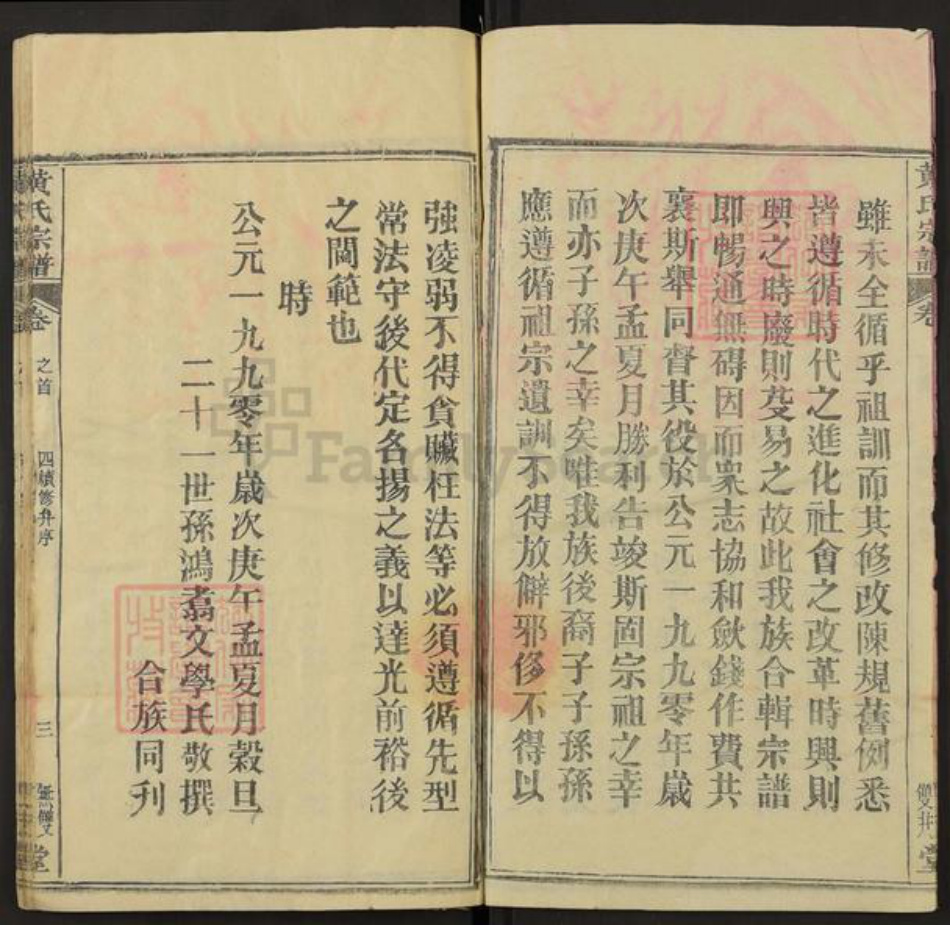 雖未全循乎祖訓而其修改陳規舊例悉
皆遵循時代之進化社會之改革時興則
興之時廢則芟易之故此我族合輯宗譜
即暢通無碍因而眾志協和歛錢作費共
襄斯舉同督其役於公元一九九零年歲
次庚午孟夏月勝利告竣斯固宗祖之幸
而亦子孫之幸矣唯我族後裔子子孫孫
應遵循祖宗遺訓不得放僻邪侈不得以
強凌弱不得貪贓枉法等必須遵循先型
常法守後代定名揚之義以達光前裕後
之閫範也
時
公元一九九零年歲次庚午孟夏月穀旦
二十一世孫鴻翥文學氏敬撰
合族同刋
黃氏宗譜
卷
之首
四續修弁序
三
堂
黃氏宗譜
卷
堂
FamilySearch